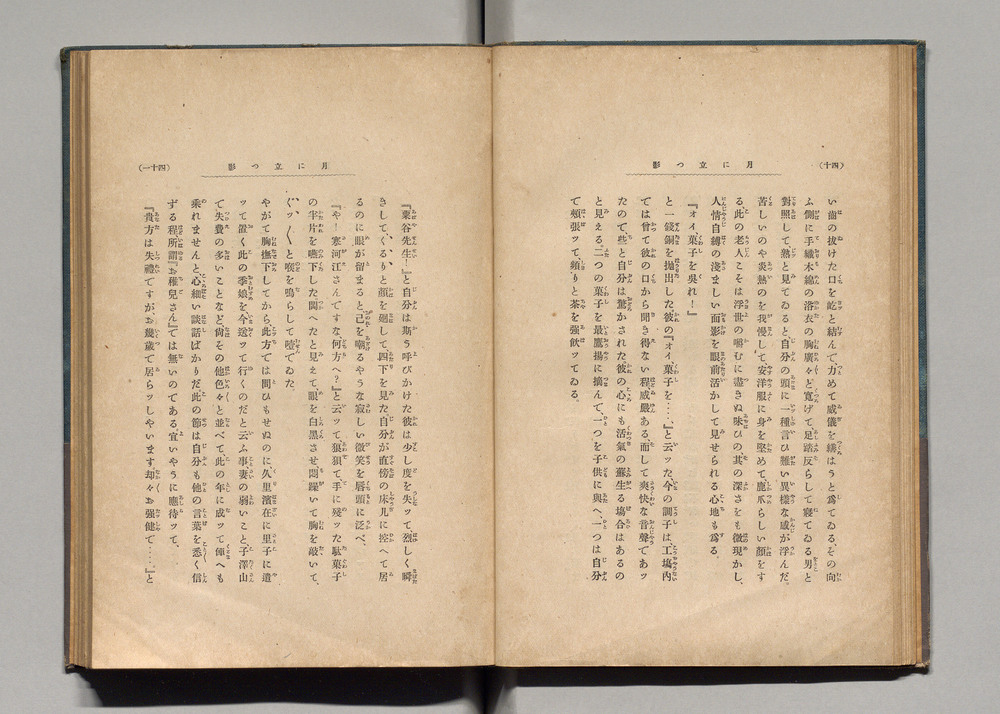 (四十)
月に立つ影
い齒の拔けた口を屹と結んで力めて威儀を繕はうと爲てゐる。その向
ふ側に手織木綿の浴衣の胸廣々と寛げて足踏反らして寢てゐる男と
對照して熟と見てゐると、自分の頭に一種言ひ難い異樣な感が浮んだ。
苦しいのや炎熱のを我慢して安洋服に身を堅めて、鹿爪らしい顏をす
る、此の老人こそは浮世の嚼むに盡きぬ味ひの其の深さをも微現かし、
人情自縛の淺ましい面影を眼前活かして見せられる心地も爲る。
『オイ、菓子を吳れ！』
と一錢銅を拋出した彼の『オイ、菓子を‥‥』と云ッた今の調子は、工塲內
では曾て彼の口から聞き得ない程威嚴ある、而して爽快な音聲であッ
たので、些と自分は驚かされた。彼の心にも活氣の蘇生る塲合はあるの
と見える。二つの菓子を最鷹揚に摘んで、一つを子供に與へ、一つは自分
て頰張ッて頻りと茶を强飮ッてゐる。
(四十一)
月に立つ影
『東谷先生！』と自分は斯う呼びかけた彼は少し度を失ッて烈しく瞬
きして、くるりと顏を廻して四下を見た自分が直傍の床几に控へて居
るのに眼が留まると、己を嘲るやうな寂しい微笑を唇頭に泛べ、
『や！寒河江さんですな、何方へ？』と云ッて狼狽て手に殘ッた駄菓子
の半片を嚥下した閊へたと見えて、眼を白黑させ、悶躁いて胸を敲いて、
ぐッ〱と喉を鳴らして噎でゐた。
やがて胸撫下してから此方では問ひもせぬのに久里濱在に里子に遣
ッて置く此の季娘を今送ッて行くのだと云ふ事、妻の弱いこと、子澤山
て失費の多いことなど、尙その他色々と並べて、此の年に成ッて俥へも
乘れませんと、心細い談話ばかりだ。此の節は自分も他の言葉を悉く信
ずる程所謂『お稚兒さん』では無いのである。宜いやうに應待ッて、
『貴方は失禮ですが、お幾歲で居らッしやいます却々お强健で‥‥』と